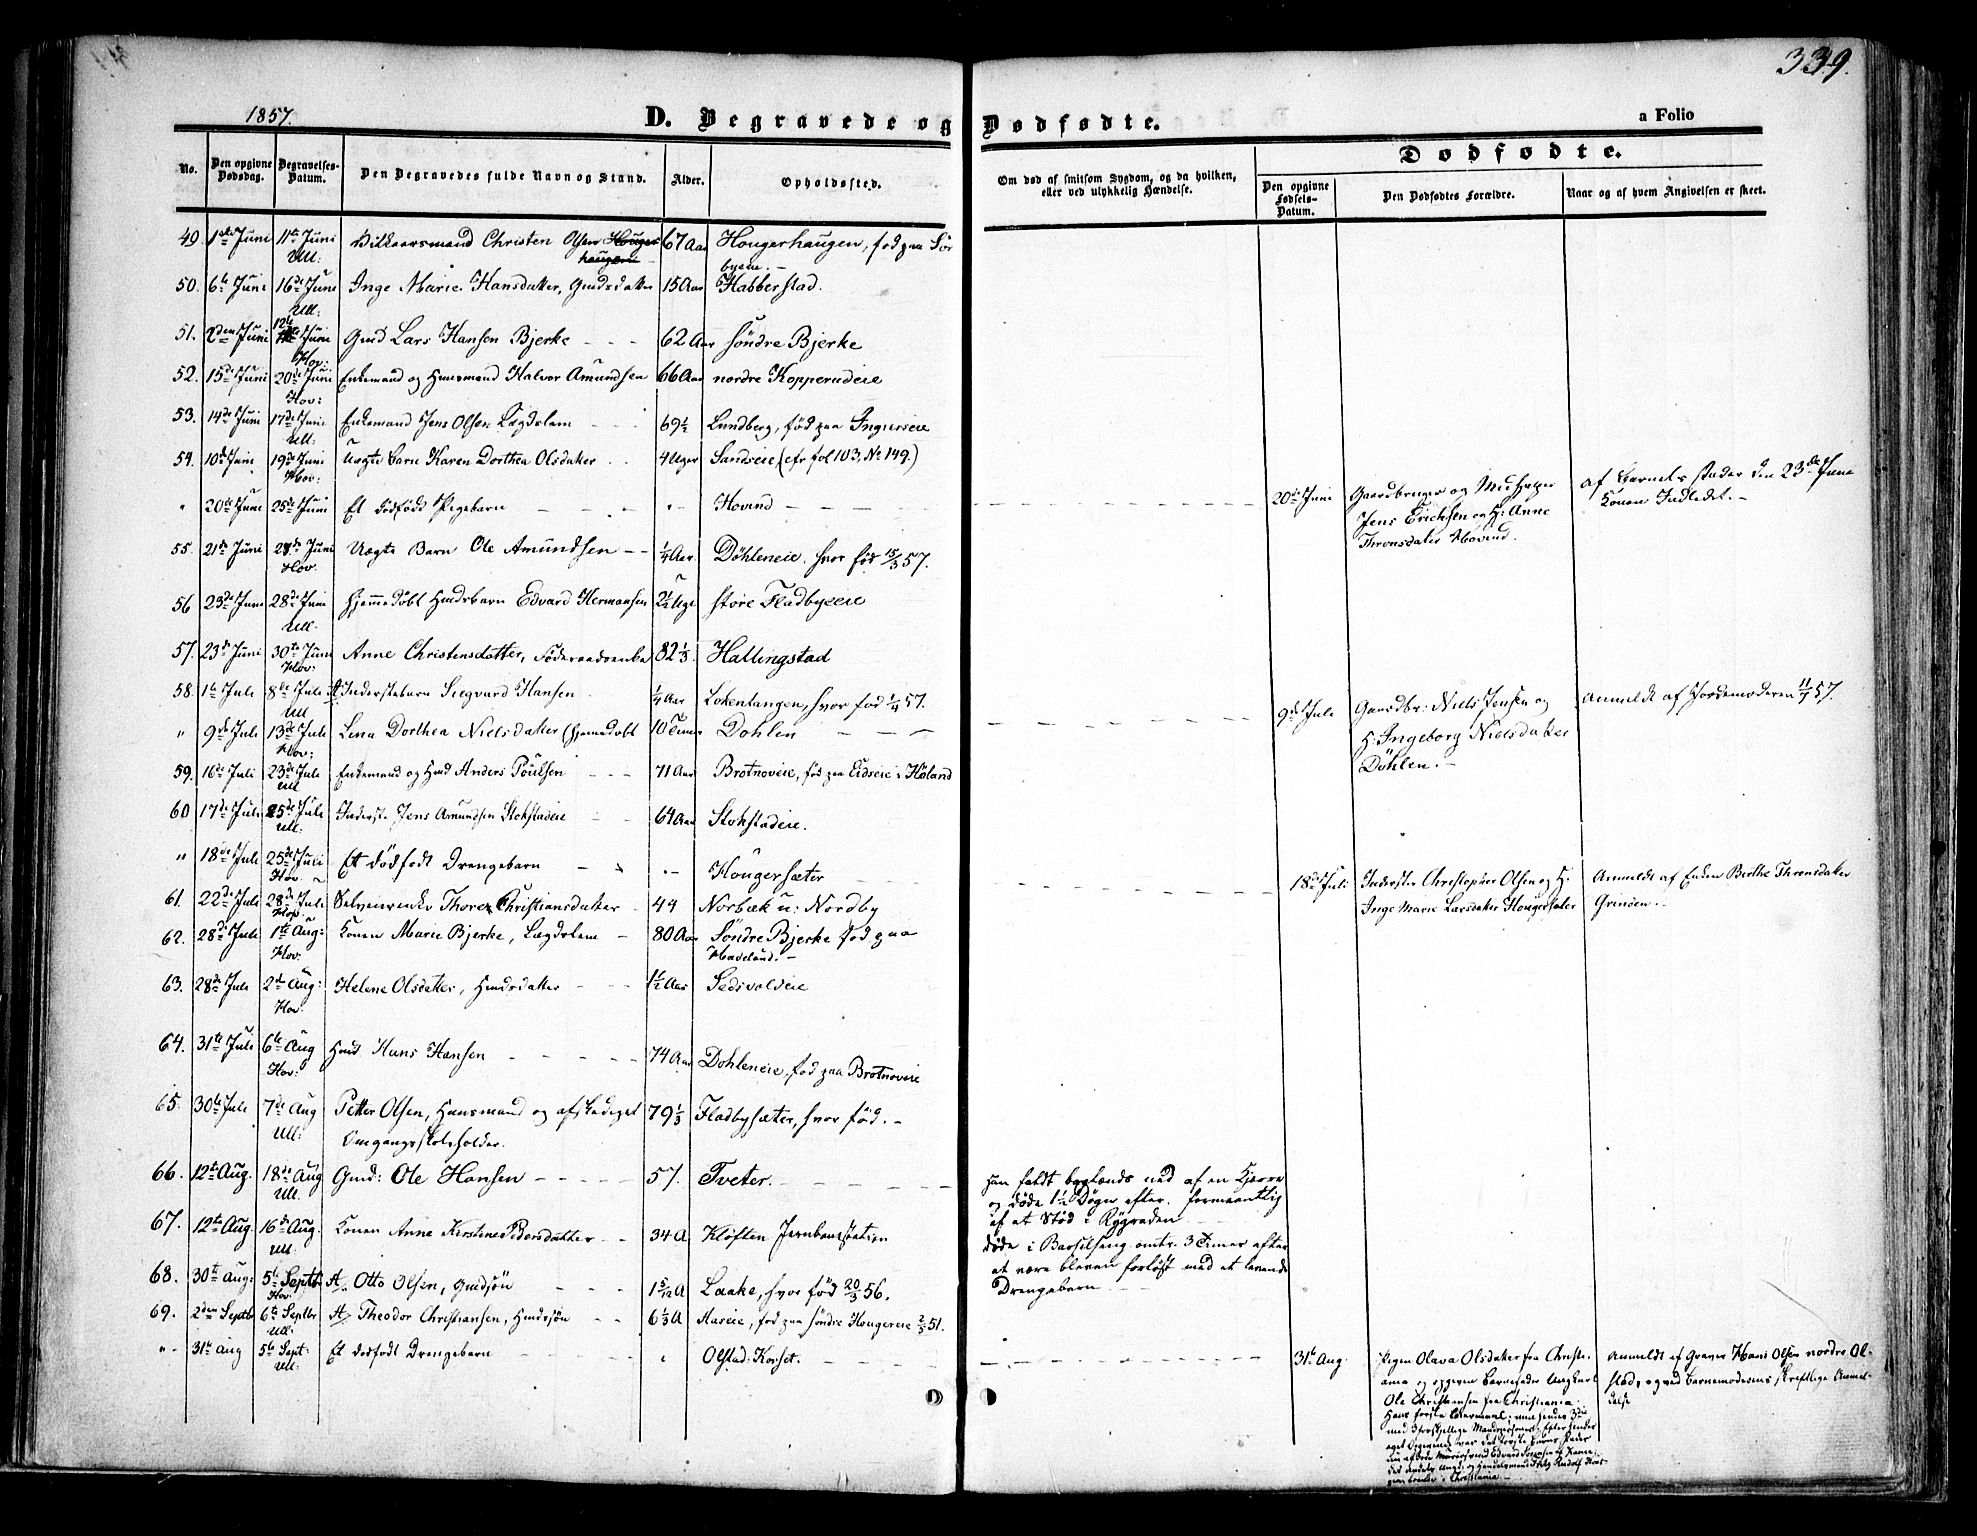 339.
1857.
D. Begravede og Dødfødte.
a Folio
No.
Den opgivne Dødsdag.
Begravelses-Datum.
Den Begravedes fulde Navn og Stand.
Alder.
Opholdssted.
Om død af smitsom Sygdom, og da hvilken, eller ved ulykkelig Hændelse.
Dødfødte.
Den opgivne Fødsels-Datum.
Den Dødfødtes Forældre.
Naar og af hvem Angivelsen er skeet.
49. 1ste Juni 11te Juni Ull: Vilkaarsmand Christen Olsen Houger haugen 67 Aar Hougerhaugen, fød paa Sør byeie.
50. 6te Juni 16de Juni Ull: Inge Marie Hansdatter, Gmdsdatter 15 Aar Habberstad.
51. 2den Juni 12te Juni Hov: Gmd Lars Hansen Bjerke 62 Aar søndre Bjerke
52. 15de Juni 20de Juni Hov: Enkemand og Huusmand Halvor Amundsen 66 Aar nordre Kopperudeie
53. 14de Juni 17de Juni Ull: Enkemand Jens Olsen Lægdslem 69½ Lundberg, fød paa Ingierseie
54. 10de Juni 19de Juni Hov: Uægte Barn Karen Dorthea Olsdatter 4 Uger Sandseie (cfr fol 103, No 149.)
" 20de Juni 25de Juni Et dødfødt Pigebarn "- Hovind 20de Juni Gaardbruger og Medhjelper af Barnets Fader den 23de Juni
Jens Erichsen og H: Anne Konen Indledet.-
Thronsdatter Hovind.
55. 21de Juni 28de Juni Hov. Uægte Barn Ole Amundsen ¼ Aar Döhleneie, hvor fød 15/3 57.
56 23de Juni 28de Juni Ull. hjemmedøbt Hmdsbarn Edvard Hermansen 2½ Uge store Fladbyeie
57. 23de Juni 30te Juni Hov: Anne Christensdatter, Føderaadsenke 82⅓ Hallingstad
58. 1ste Juli 8de Juli Ull A: Inderstebarn Siegvard Hansen ¼ Aar Lokentangen, hvor fød 1/4 57.
" 9de Juli 13de Juli Hov: Lena Dorthea Nielsdatter (hjemmedøbt 10 Timer Dohlen 9de Juli Gaardbr: Niels Jensen og Anmeldt af Jordemoderen 11/7 57.
H: Ingeborg Nielsdatter
Döhlen.-
59. 16de Juli 23de Juli Ull Enkemand og Hmd Anders Poulsen 71 Aar Brotnoveie, fød paa Eidseie i Høland
60 17de Juli 25de Juli Ull: Inderste Jens Amundsen Stokstadeie 64 Aar Stokstadeie.
" 18de Juli 25de Juli Hov. Et dödfødt Drengebarn "- Hougersæter 18de Juli Inderste Christopher Olsen og H: Anmeldt af Enken Berthe Thronsdatter
Inge Marie Larsdatter Hougersæter Grinden.-
61. 22de Juli 28de Juli Hov. Selveierenke Thore Christiansdatter 44 Norbæk u: Nordby
62. 28de Juli 1ste Aug: Hov. Konen Marie Bjerke, Lægdslem 80 Aar Søndre Bjerke fød paa Hadeland.-
63. 28de Juli 2de Aug: Hov. Helene Olsdatter, Hmdsdatter 1½ Aar Sedsvoldeie
64. 31te Juli 6te Aug Hov: Hmd. Hans Hansen 74 Aar Dohleneie, fød paa Brotnoveie
65. 30te Juli 7de Aug Ull: Petter Olsen, Huusmand og afskediget Omgangsskoleholder. 79⅓ Fladbysæter, hvor fød.-
66. 12te Aug. 18de Aug Ull. Gmd: Ole Hansen 57. Tveter. han faldt baglænds ned af en Kjerre
og døde 1½ Døgn efter. formeentlig
af et Stød i Rygraden
67. 12te Aug 16de Aug. Ull. Konen Anne Kirstine Pedersdatter 34 A Kløften Jernbanestation døde i Barselseng omtr. 3 Timer efter
at være bleven forløst med et levende
Drengebarn
68. 30te Aug: 5te Septbr Hov. A. Otto Olsen, Gmdsøn 1 5/12 A Laake, hvor fød 20/3 56.
69. 2den Septbr 6te Septbr Ull. A. Theodor Christiansen, Hmdssøn 6⅓ A Aaseie, fød paa søndre Hougereie 2/5 51.
"- 31te Aug 5te Sept: Ull. Et dødfødt Drengebarn " Olstad: Korset. 31te Aug. Pigen Olava Olsdatter fra Christi- Anmeldt af Graver Hans Olsen nordre Ol-
ania og opgiven Barnefader Ungkarl stad, og ved Barnemoderens skriftlige Anmel-
Ole Christiansen fra Christiania. delse
Hans første Leiermaal; men hendes 3die
med 3 forskjellige Mandspersoner; Efter hendes
eget Opgivende var det første Barns Fader